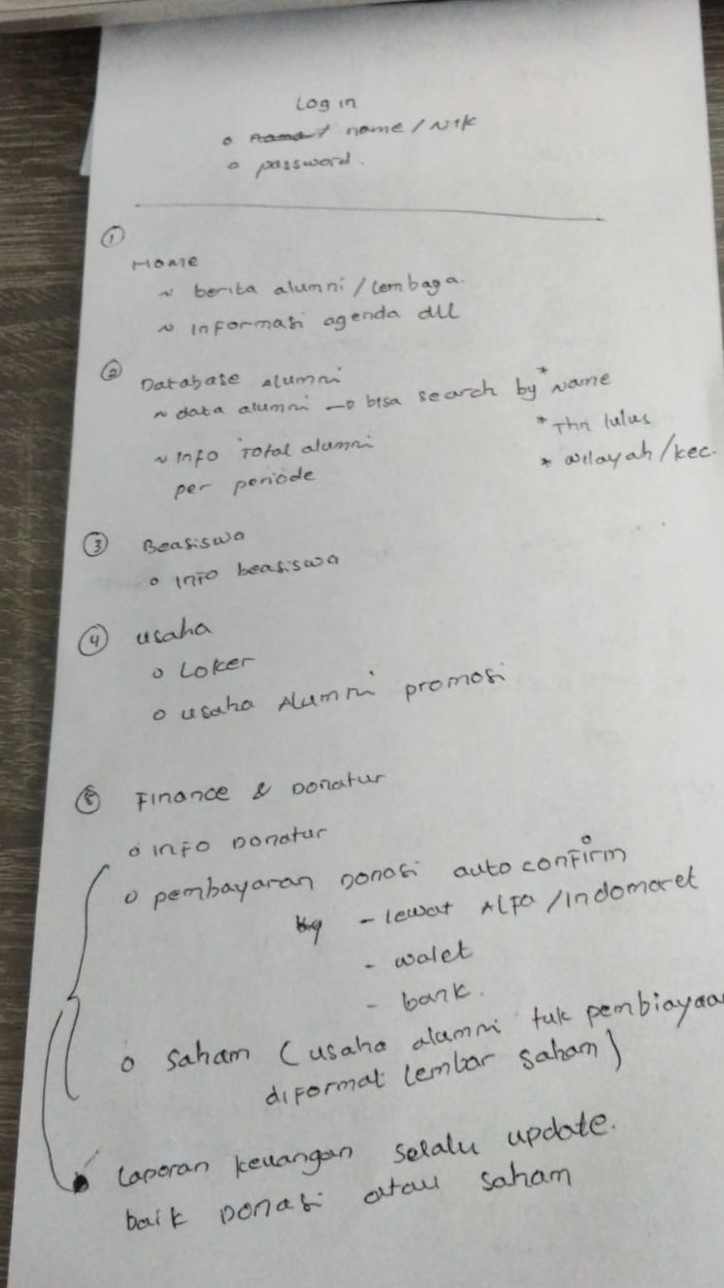 Log in
o name / NIK
o password.
①
Home
~ berita alumni / lembaga.
~ Informasi agenda dll
② Database Alumni
~ data alumni → bisa search by * Name
* Thn lulus
* wilayah/kec.
~ Info Total alumni
per periode
③ Beasiswa
o Info beasiswa
④ usaha
o Loker
o usaha Alumni promosi
⑤ Finance & Donatur
o info Donatur
o pembayaran Donasi auto confirm
- lewat Alfa/Indomaret
- walet
- bank.
o Saham (usaha alumni tuk pembiayaa
diformat lembar saham)
Laporan keuangan selalu update.
baik Donasi atau saham